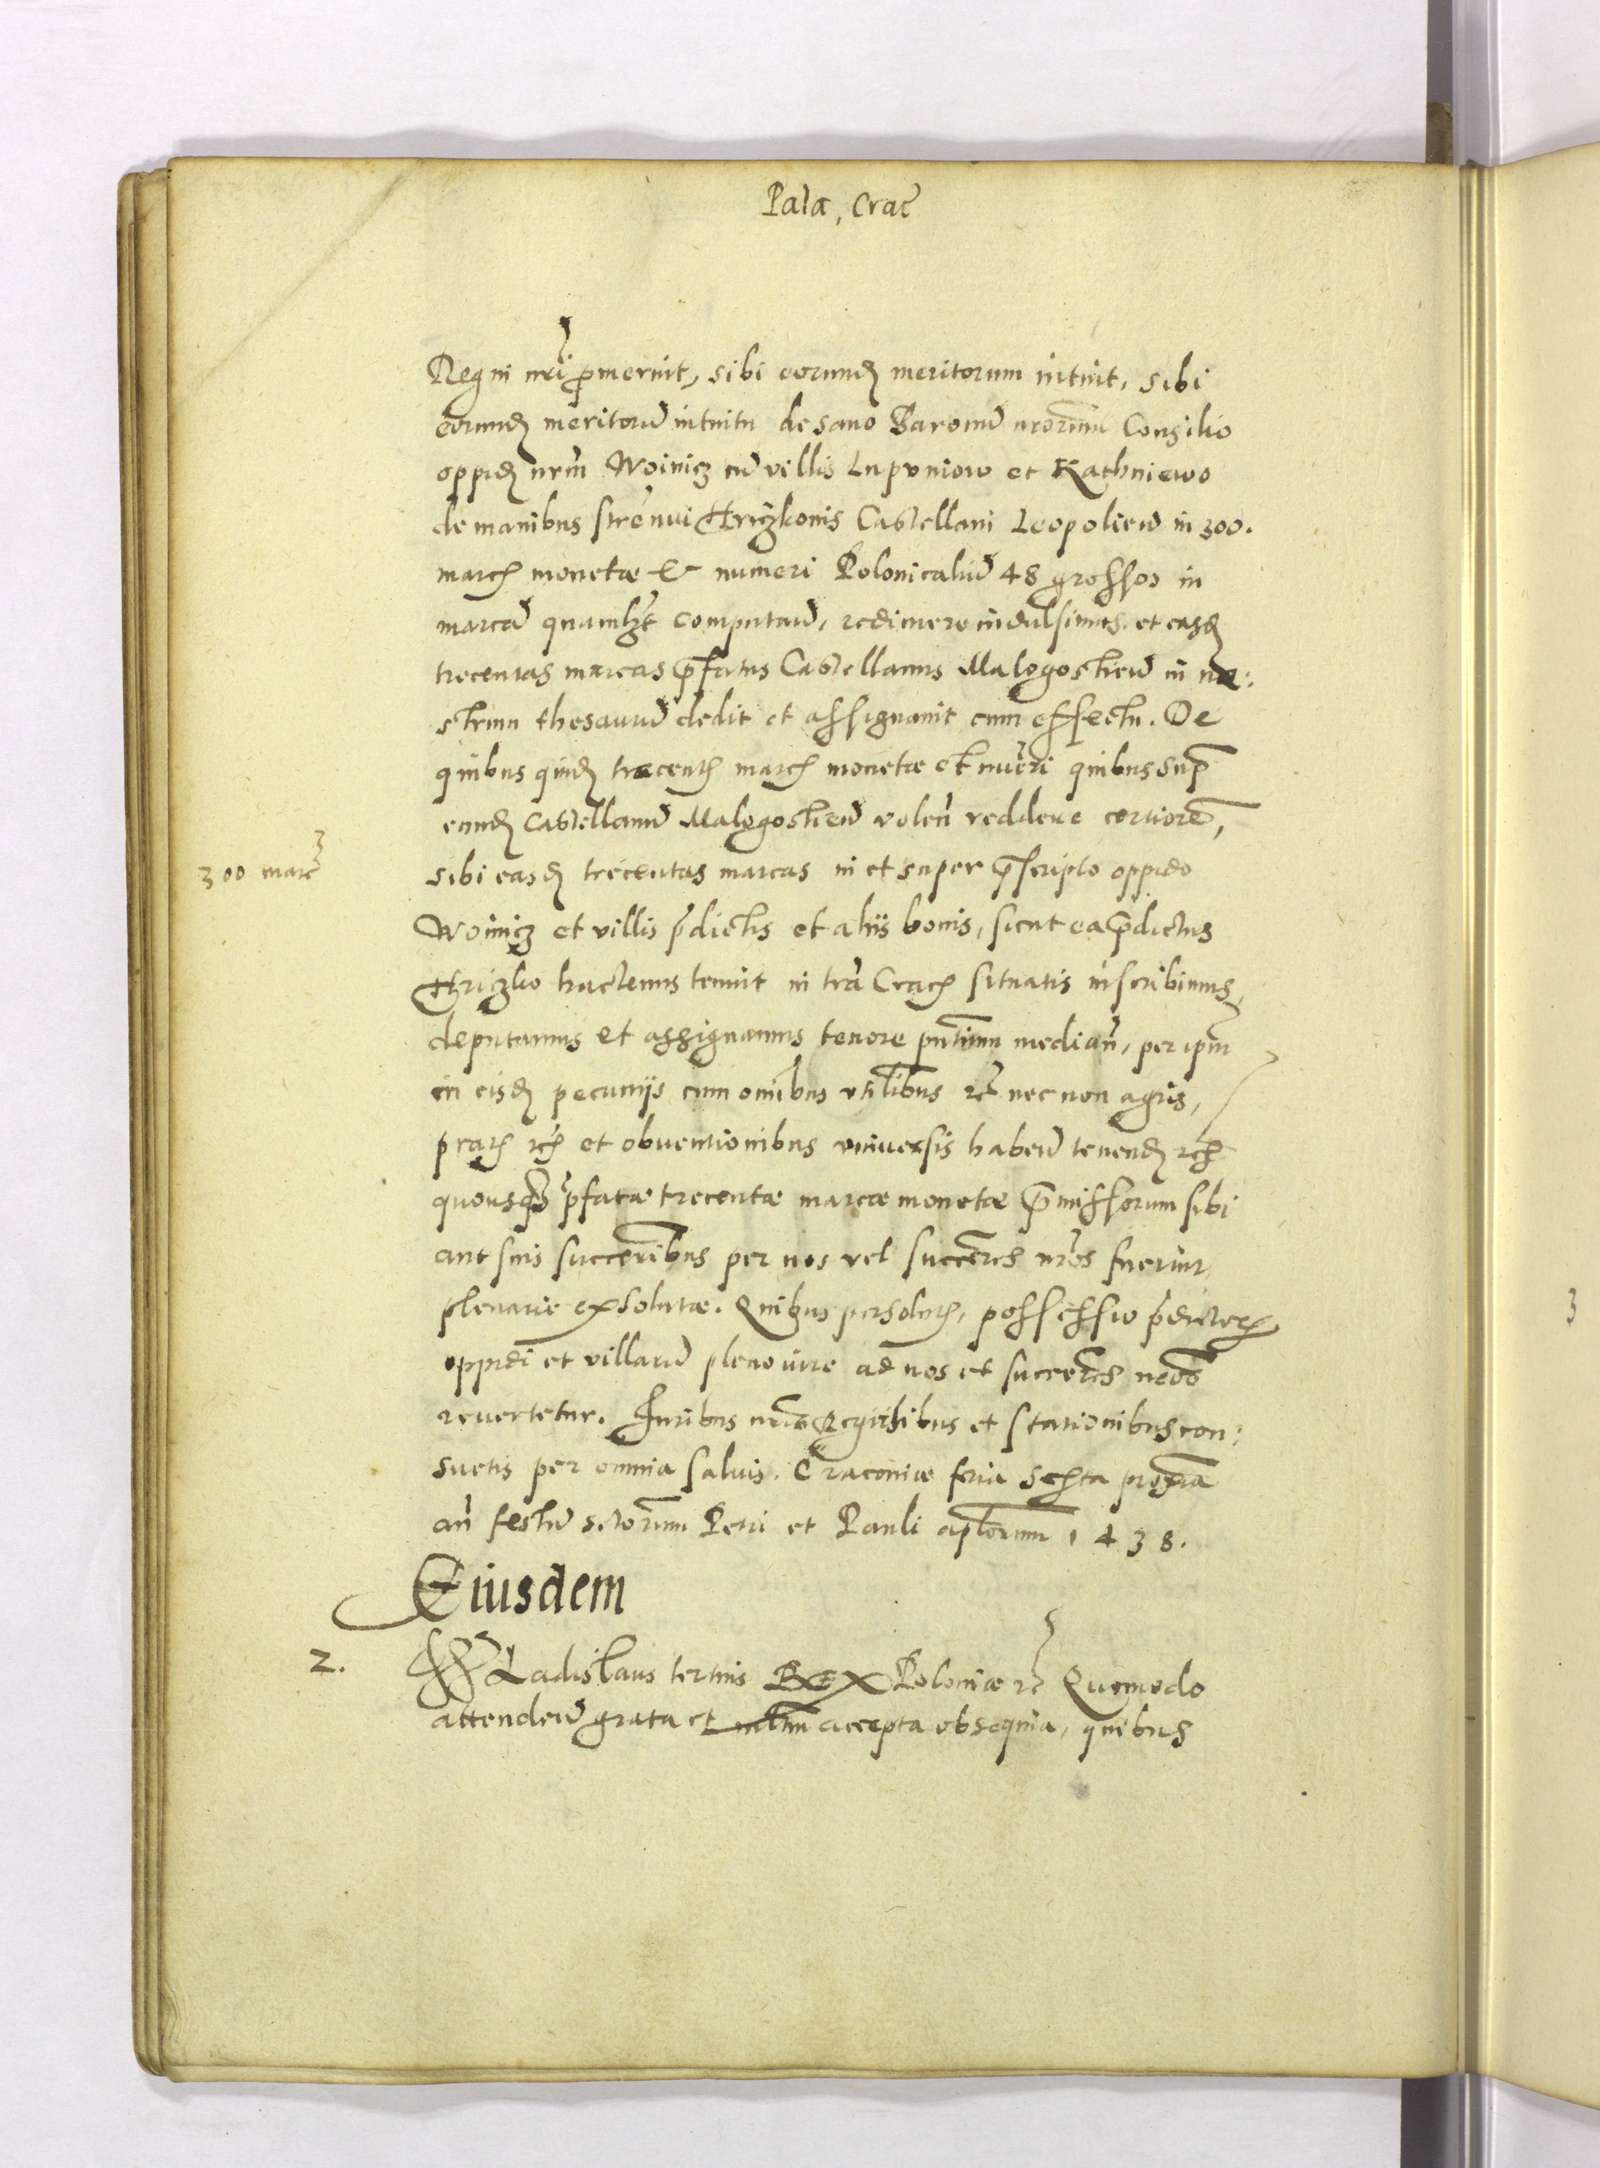 Pala, Crac̃
Regni nr̃i ꝓmeruit, sibi eorundꝫ meritorum intuit, sibi
eorundꝫ meritorũ intuitu de sano Baronũ nr̃orum Consilio
oppidꝫ nrm̃ Woinicz cũ villis Lupvniow et Kathniewo
de manibus strenui Hriczkonis Castellani Leopolieñ in 300.
marcꝫ monetæ & numeri Polonicaliũ 48 grossos in
marcã quamlꝫt computañ, redimere indulsimus. et easdꝫ
trecentas marcas p̃fatus Castellanus Malogostieñ in no:
strum thesaurũ dedit et assignauit cum effectu. De
quibus quidꝫ trecentꝫ marcꝫ monetæ et nũeri quibus sup̃
eundꝫ Castellanũ Malogostieñ voleñ reddere certiorẽ,
300 marc̃
sibi easdꝫ trecentas marcas in et super p̃scripto oppido
Woinicz et villis p̃dictis et aliis bonis, sicut ea p̃dictus
Hriczko hactenus tenuit in tr̃a Cracꝫ situatis inscribimus,
deputamus et assignamus tenore pñtium mediañ, per ipm̃
in eisdꝫ pecunijs cum om̃ibus vtilibus rc̃ nec non agris,
pratꝫ rcꝫ et obuentionibus vniuersis habeñ tenendꝫ rcꝫ
quousqꝫ p̃fatæ trecentæ marcæ monetæ p̃missorum sibi
aut suis succeribus̃ per nos vel succeres̃ nr̃os fuerint
plenarie exsolutæ. Quibus persolutꝫ, possessio p̃dictorꝫ
oppidi et villarũ pleno iure ad nos et succeres̃ nr̃os
reuertetur. Iuribus nr̃is Regalibus et stationibus con:
suetis per omnia saluis. Cracouiæ feria sexta proxia̅
añ festũ s̃ctorum Petri et Pauli apl̃orum 1438.
Eiusdem
2. Wladislaus tertius REX Poloniæ rc̃ Quomodo
attendeñ grata et mltum̃ accepta obsequia, quibus